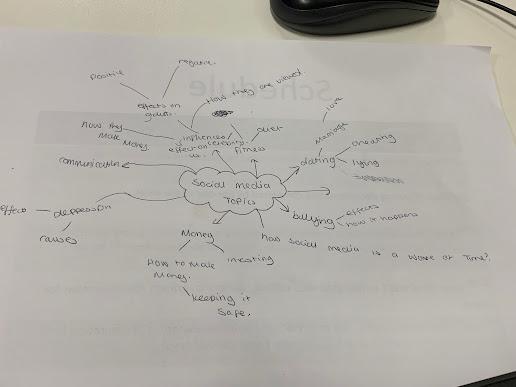 Schedule
negative
Positive
effects on
How they are viewed.
love
How they
Make
Money
influences
effect on celebrity
us.
Fitness
Diet
Marriage
dating
cheating
lying
communication
Social media
Topics
bullying
effects
how it happens
effect
depression
causes
Money
How to Make
Money.
investing
keeping it
safe.
has social media is a waste of Time?